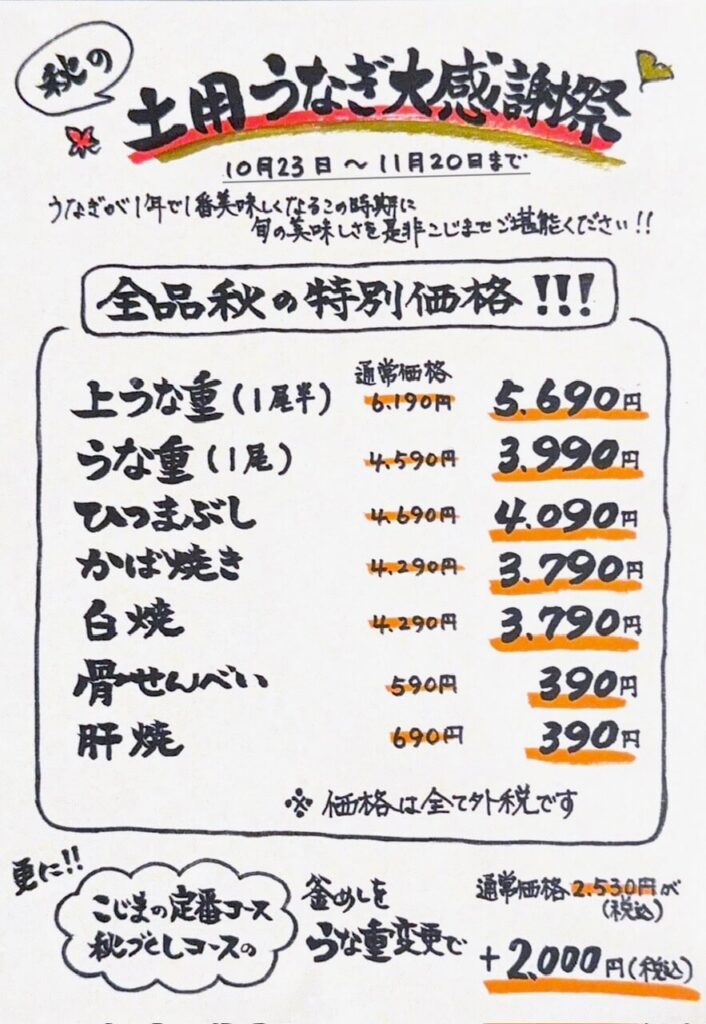 秋の
土用うなぎ大感謝祭
10月23日〜11月20日まで
うなぎが1年で1番美味しくなるこの時期に
旬の美味しさを是非こじまでご堪能ください!!
全品秋の特別価格!!!
通常価格
上うな重(1尾半) 6.190円 5.690円
うな重(1尾) 4.590円 3.990円
ひつまぶし 4.690円 4.090円
かば焼き 4.290円 3.790円
白焼 4.290円 3.790円
骨せんべい 590円 390円
肝焼 690円 390円
※価格は全て外税です
更に!!
こじまの定番コース
秋づくしコースの
釜めしを
うな重変更で
通常価格2.530円が
(税込)
+2,000円(税込)